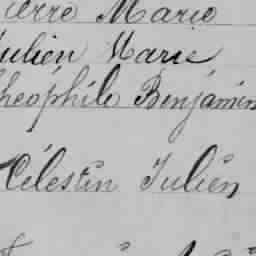 ierre Marie
ulien Marie
héophile Benjamin
Célestin Julien